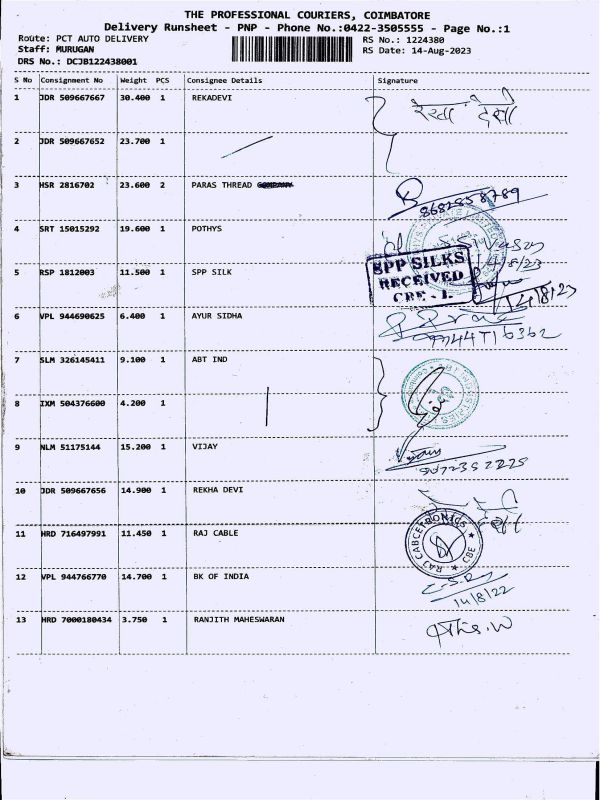 THE PROFESSIONAL COURIERS, COIMBATORE
Delivery Runsheet - PNP - Phone No.:0422-3505555 - Page No.:1
Route: PCT AUTO DELIVERY
RS No.: 1224380
Staff: MURUGAN
RS Date: 14-Aug-2023
DRS No.: DCJB122438001
S No Consignment No Weight PCS Consignee Details Signature
1 JDR 509667667 30.400 1 REKADEVI रेखा देवी
2 JDR 509667652 23.700 1
3 HSR 2816702 23.600 2 PARAS THREAD COMPANY
4 SRT 15015292 19.600 1 POTHYS
5 RSP 1812003 11.500 1 SPP SILK
SPP SILKS
RECEIVED
CBE - 1.
14/8/23
6 VPL 944690625 6.400 1 AYUR SIDHA
7 SLM 326145411 9.100 1 ABT IND
8 IXM 504376600 4.200 1
9 NLM 51175144 15.200 1 VIJAY
10 JDR 509667656 14.900 1 REKHA DEVI
11 HRD 716497991 11.450 1 RAJ CABLE
12 VPL 944766770 14.700 1 BK OF INDIA
14/8/22
13 HRD 7000180434 3.750 1 RANJITH MAHESWARAN